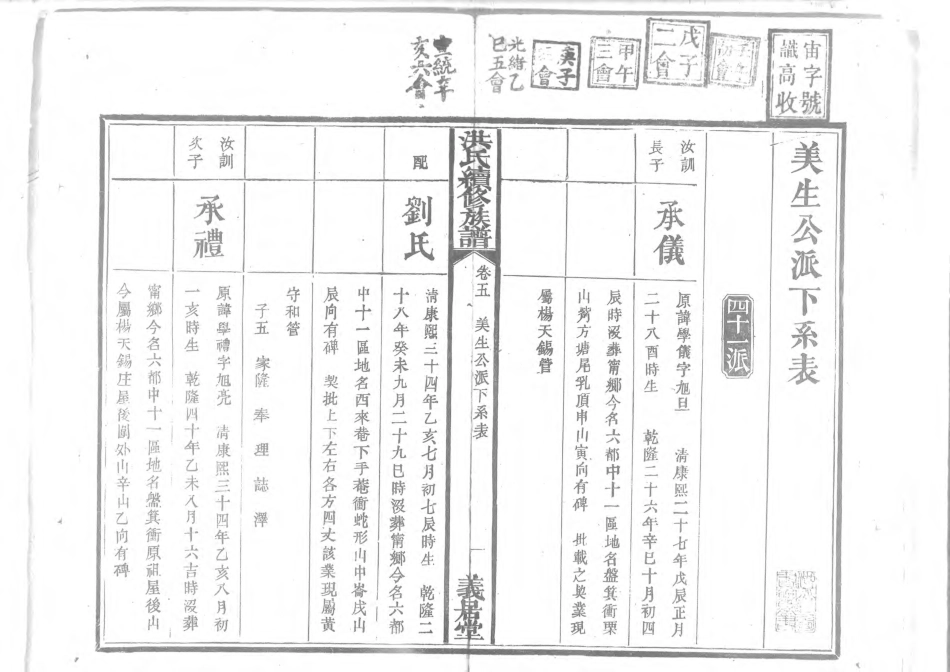 宙字號
識高收
戊子
二會
甲午
三會
庚子
會
光緒乙
巳五會
宣統辛
亥六會
美生公派下系表
四十一派
汝訓
長子
承儀
原諱學儀字旭旦　清康熙二十七年戊辰正月
二十八酉時生　乾隆二十六年辛巳十月初四
辰時沒葬甯鄉今名六都中十一區地名盤箕衝栗
山灣方塘尾乳頂申山寅向有碑　批載之契業現
屬楊天錫管
洪氏續修族譜
卷五　美生公派下系表
一
義居堂
配
劉氏
清康熙三十四年乙亥七月初七辰時生　乾隆二
十八年癸未九月二十九巳時沒葬甯鄉今名六都
中十一區地名西來菴下手菴衝蛇形山中崙戌山
辰向有碑　契批上下左右各方四丈該業現屬黃
守和管
子五　家隆　奉　理　誌　澤
汝訓
次子
承禮
原諱學禮字旭亮　清康熙三十四年乙亥八月初
一亥時生　乾隆四十年乙未八月十六吉時沒葬
甯鄉今名六都中十一區地名盤箕衝原祖屋後山
今屬楊天錫庄屋後圍外山辛山乙向有碑